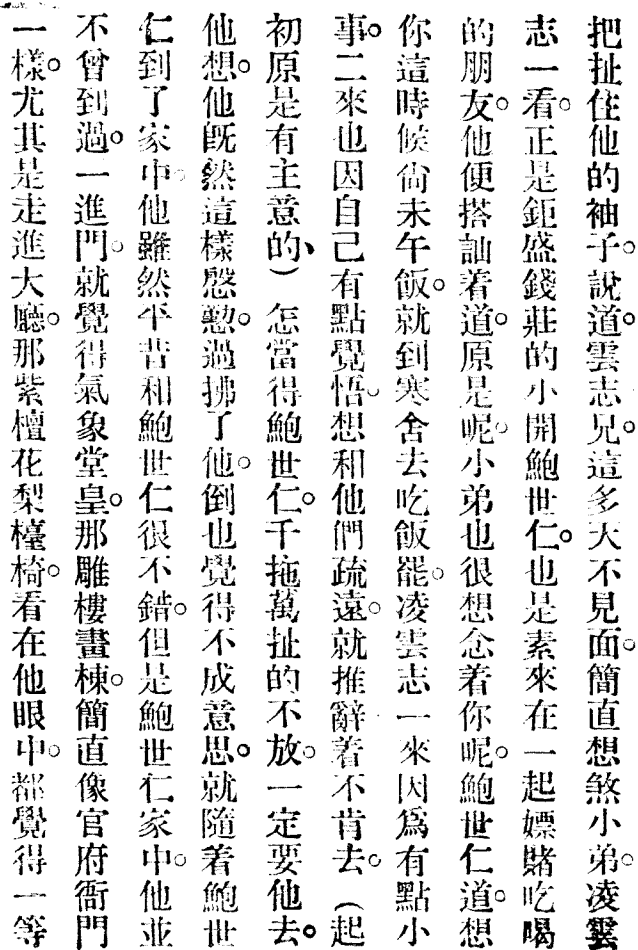 把扯住他的袖子。說道。雲志兄。這多天不見面。簡直想煞小弟。凌雲
志一看。正是鉅盛錢莊的小開鮑世仁。也是素來在一起嫖賭吃喝
的朋友。他便搭訕着道。原是呢。小弟也很想念着你呢。鮑世仁道。想
你這時候尙未午飯。就到寒舍去吃飯罷。凌雲志一來因爲有點小
事。二來也因自己有點覺悟。想和他們疏遠。就推辭着不肯去。（起
初原是有主意的、）怎當得鮑世仁。千拖萬扯的不放。一定要他去。
他想。他旣然這樣慇懃。過拂了他。倒也覺得不成意思。就隨着鮑世
仁到了家中。他雖然平昔和鮑世仁很不錯。但是鮑世仁家中。他並
不曾到過。一進門。就覺得氣象堂皇。那雕樓畫棟。簡直像官府衙門
一樣。尤其是走進大廳。那紫檀花梨檯椅。看在他眼中。都覺得一等